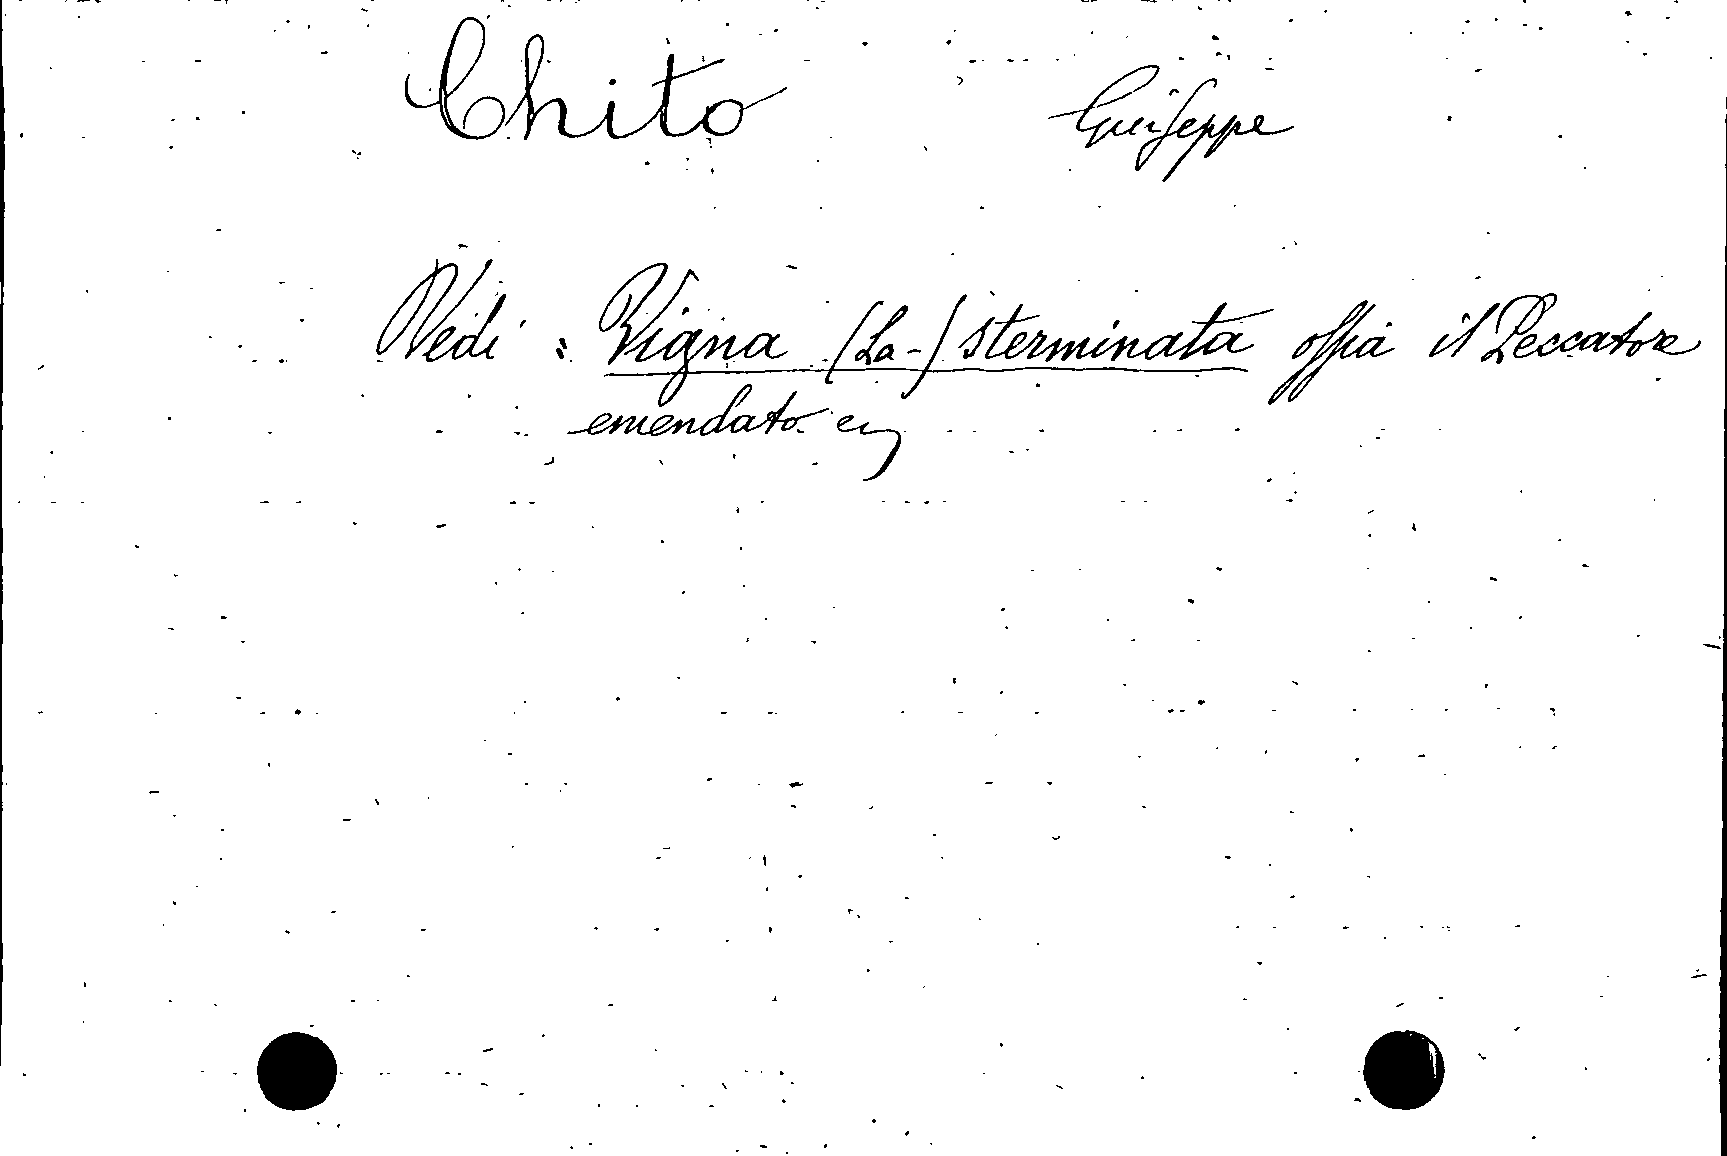 Chito Giuseppe
Vedi : Vigna (La-) sterminata ossia il Peccatore
emendato